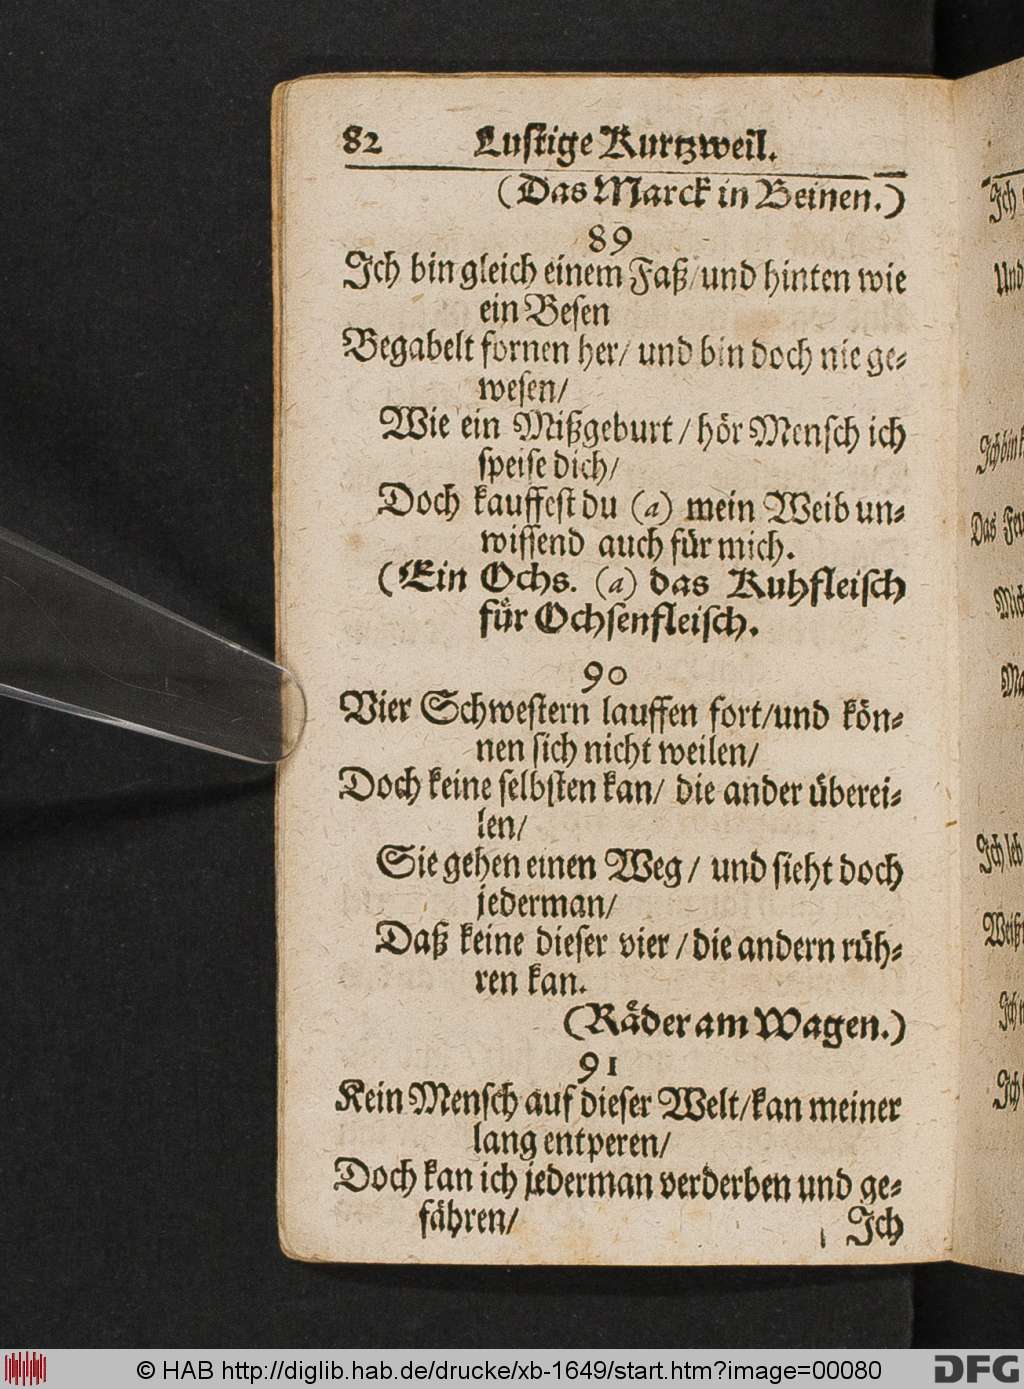 82 Lustige Kurtzweil.
(Das Marck in Beinen.)
89
Ich bin gleich einem Faß/und hinten wie
ein Besen
Begabelt fornen her/ und bin doch nie ge-
wesen/
Wie ein Mißgeburt/ hör Mensch ich
speise dich/
Doch kauffest du (a) mein Weib un-
wissend auch für mich.
(Ein Ochs. (a) das Kuhfleisch
fůr Ochsenfleisch.
90
Vier Schwestern lauffen fort/und kön-
nen sich nicht weilen/
Doch keine selbsten kan/ die ander überei-
len/
Sie gehen einen Weg/ und sieht doch
jederman/
Daß keine dieser vier/ die andern rüh-
ren kan.
(Råder am Wagen.)
91
Kein Mensch auf dieser Welt/kan meiner
lang entperen/
Doch kan ich jederman verderben und ge-
fähren/
Ich
Ich
Und
Das
Ich
Ich
© HAB http://diglib.hab.de/drucke/xb-1649/start.htm?image=00080
DFG